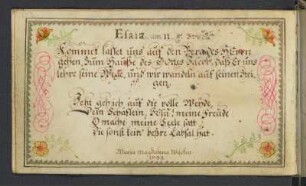 Esaiæ am 11.
Kommet lasset uns auf den Berg des HErrn
gehen, zum Hausse des Gottes Jacob, daß Er uns
lehre seine Wege, und wir wandeln auf seinen Stei-
gen.
Jetzt geh ich auf die volle Weide,
Dein Schäflein, JEsu, meine Freude
O mache meine Seele satt
du sonst kein beßre Labsal hat
Maria Magdalena